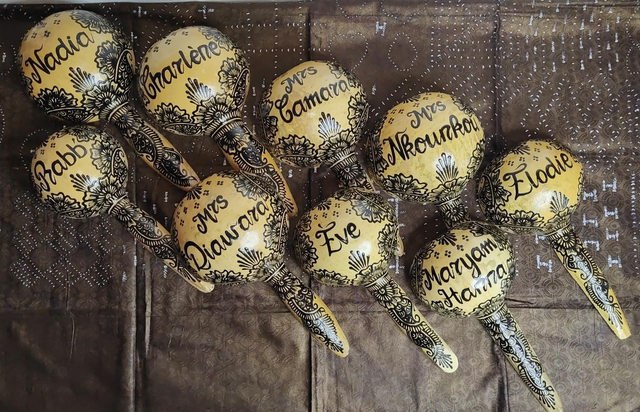 Nadia
Charlène
Mrs
Camara
Mrs
Nkounkou
Elodie
Rabbi
Mrs
Diawara
Eve
Maryam
Hanna